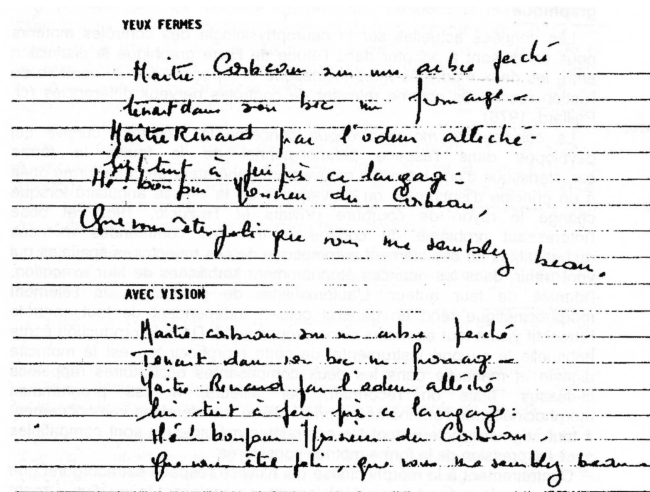 YEUX FERMES
Maître Corbeau sur une arbre perché
tenait dans son bec un fromage -
Maître Renard par l'odeur alléché
Lui tint à peu près ce langage :
Hé bonjour Monsieur du Corbeau,
Que vous êtes joli que vous me semblez beau.
AVEC VISION
Maître corbeau sur un arbre perché
Tenait dans son bec un fromage -
Maître Renard par l'odeur alléché
Lui tint à peu près ce langage :
Hé ! bonjour Monsieur du Corbeau.
Que vous êtes joli, que vous me semblez beau